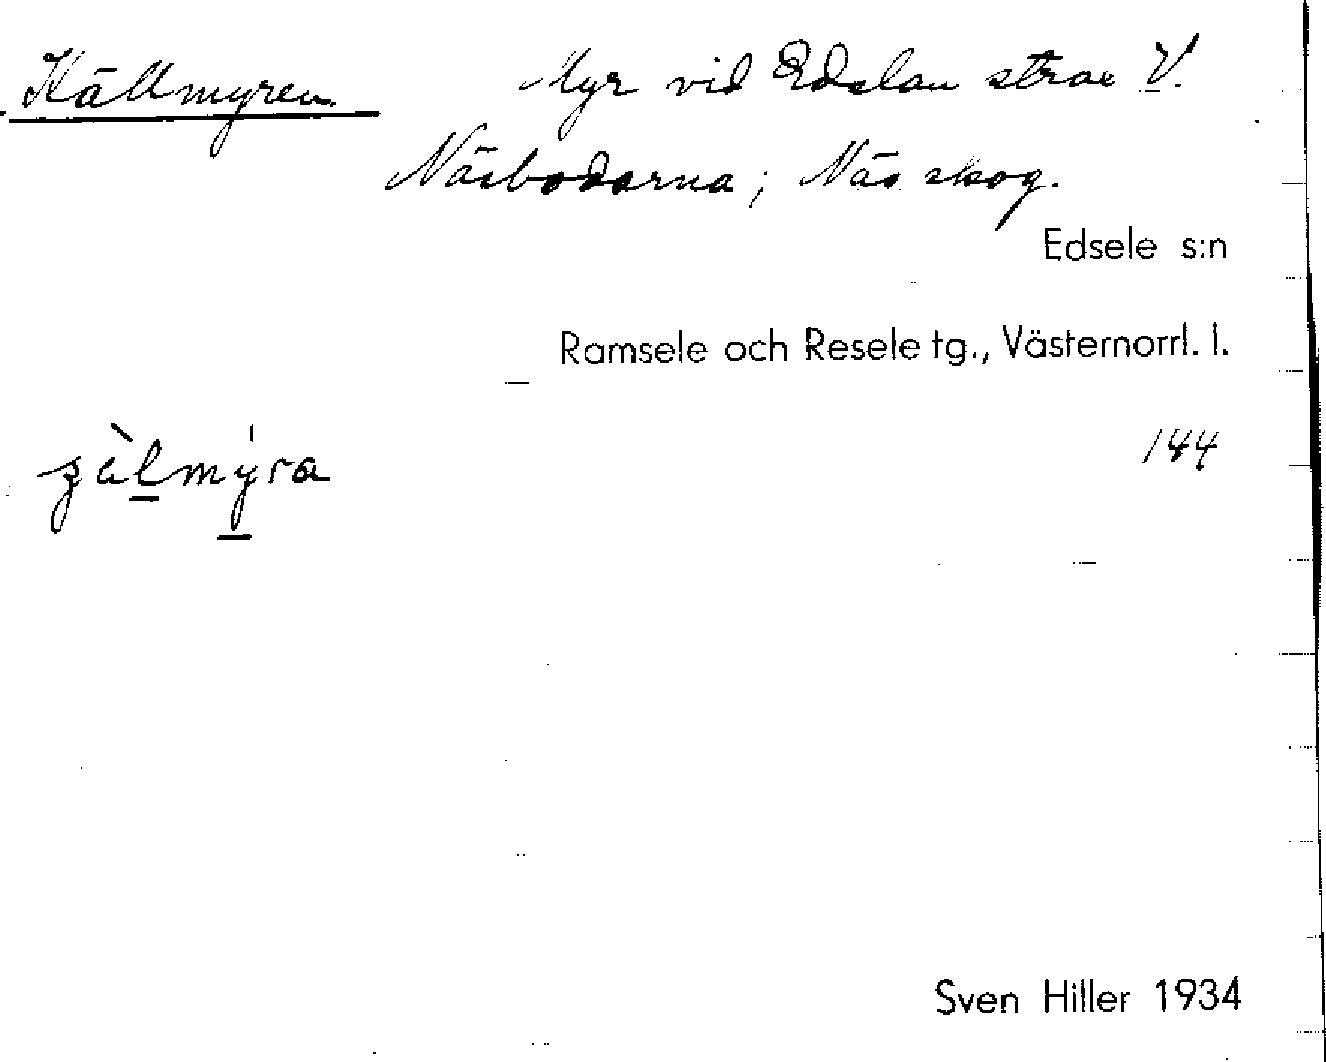 Källmyren. Myr vid Edslan strax V.
Näsbodarna; Näs skog.
Edsele s:n
Ramsele och Resele tg., Västernorrl. l.
144
Sven Hiller 1934